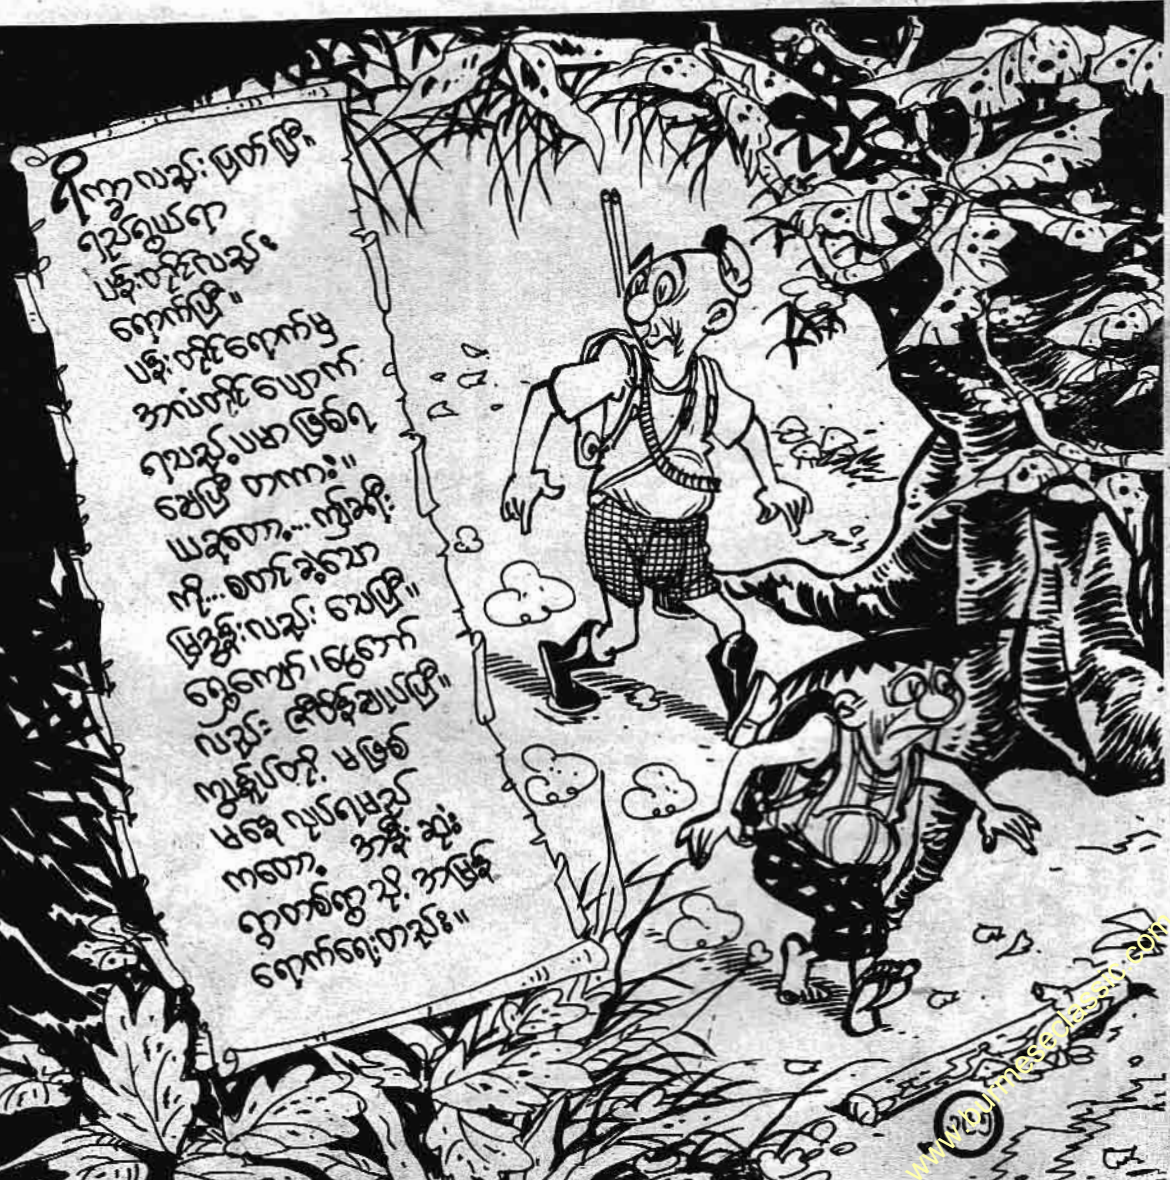 ရိက္ခာလည်း ပြတ်ပြီ၊
ရည်ရွယ်ရာ
ပန်းတိုင်လည်း
ရောက်ပြီ။
ပန်းတိုင်ရောက်မှ
အလံတိုင်ပျောက်
ရသည့်ပမာ ဖြစ်ရ
ချေပြီ တကား။
ယခုတော့... ဤခရီး
ကို... စတင်ခဲ့သော
မြခွန်းလည်း သေပြီ။
ရွှေကျော်၊ ငွေတော်
လည်း ဇီဝိန်ချုပ်ပြီ။
ကျွန်ုပ်တို့ မဖြစ်
မနေ လုပ်ရမည်
ကတော့ အနီးဆုံး
ရွာတစ်ရွာသို့ အမြန်
ရောက်ရေးတည်း။
www.burmeseclassic.com